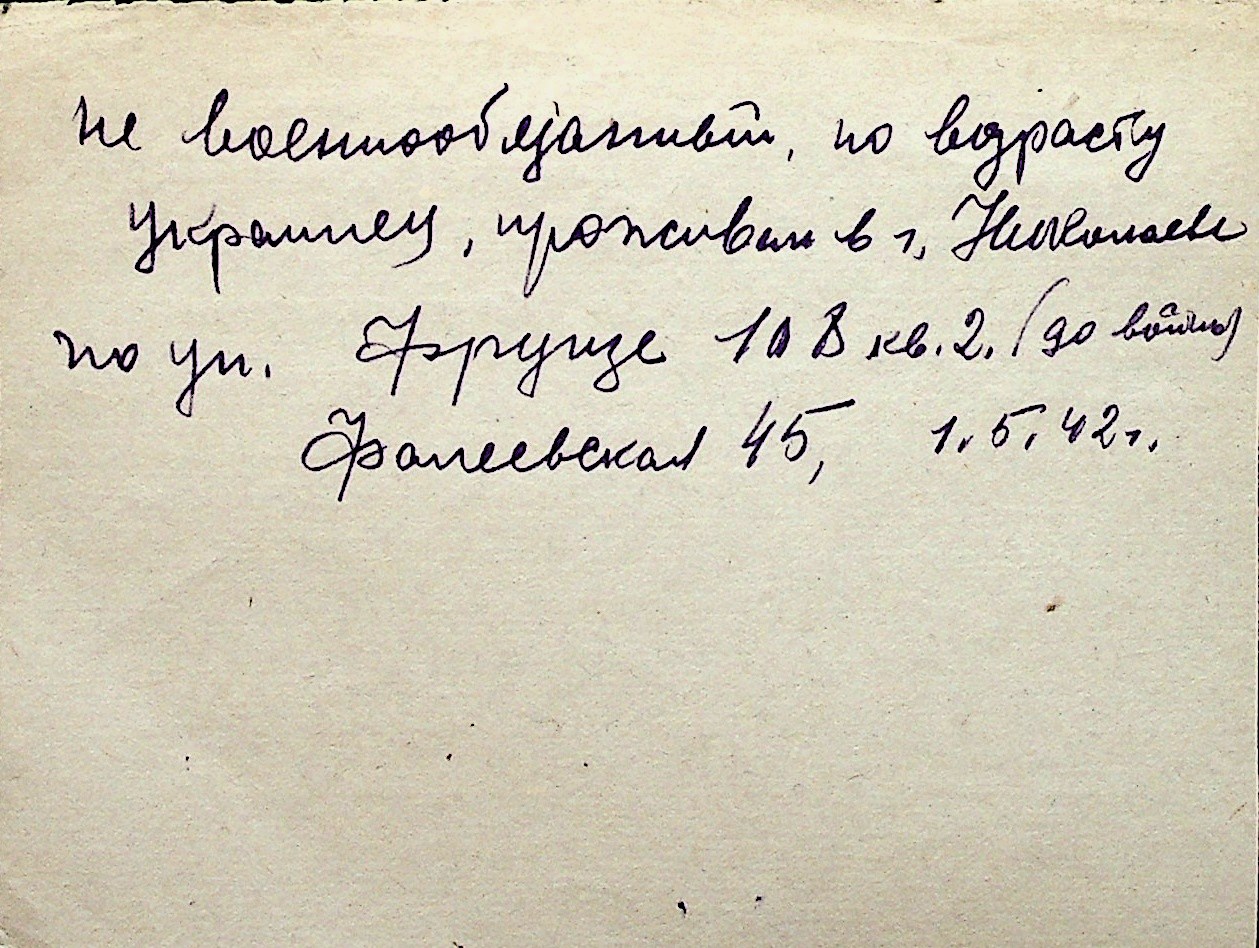 не военнообязанный, по возрасту
украинец, проживал в г. Николаеве
по ул. Фрунзе кв. 2. (до войны)
Фалеевская 45, 1.5.42г.